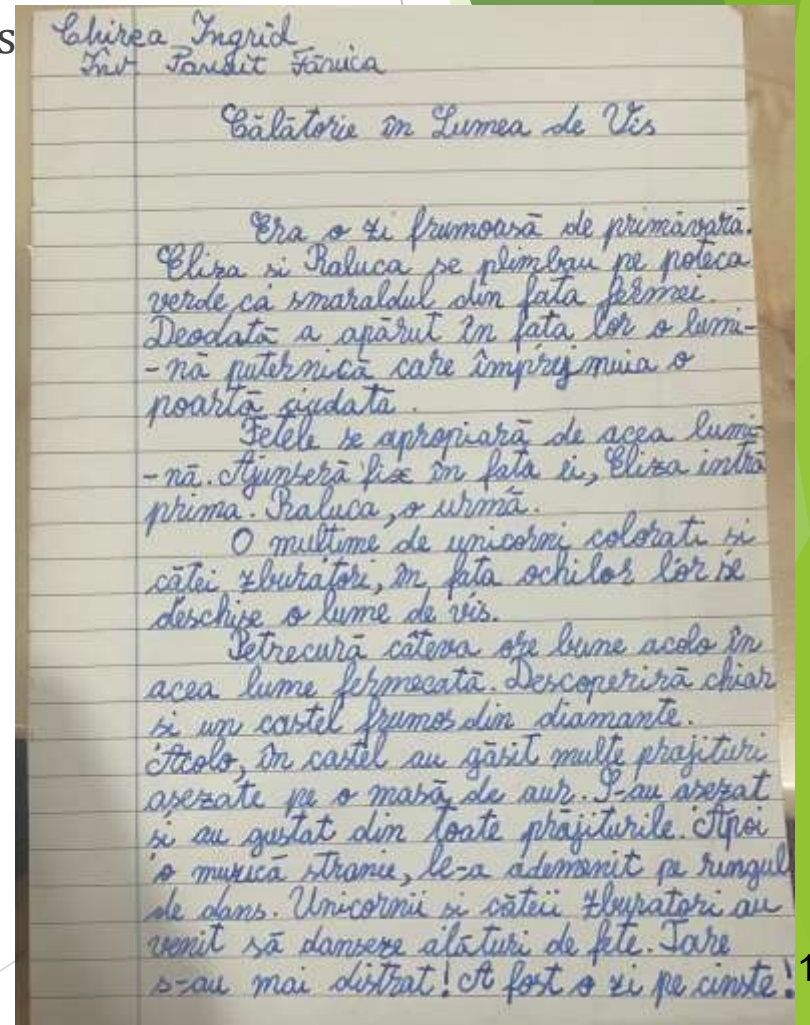 s
Chirea Ingrid
Înv. Pandit Fănica
Călătorie în Lumea de Vis
Era o zi frumoasă de primăvară.
Eliza si Raluca se plimbau pe poteca
verde ca smaraldul din fata fermei.
Deodată a apărut în fata lor o lumi-
-nă puternică care împrejmuia o
poartă ciudata.
Fetele se apropiară de acea lumi-
-nă. Ajunseră fix în fata ei, Eliza intră
prima. Raluca, o urmă.
O multime de unicorni colorati si
cătei zburători, în fata ochilor lor se
deschise o lume de vis.
Petrecură câteva ore bune acolo în
acea lume fermecată. Descoperiră chiar
si un castel frumos din diamante.
Acolo, în castel au găsit multe prajituri
asezate pe o masă de aur. S-au asezat
si au gustat din toate prăjiturile. Apoi
o muzică stranie, le-a ademenit pe ringul
de dans. Unicornii si căteii zburatori au
venit să danseze alături de fete. Tare
s-au mai distrat! A fost o zi pe cinste!
1